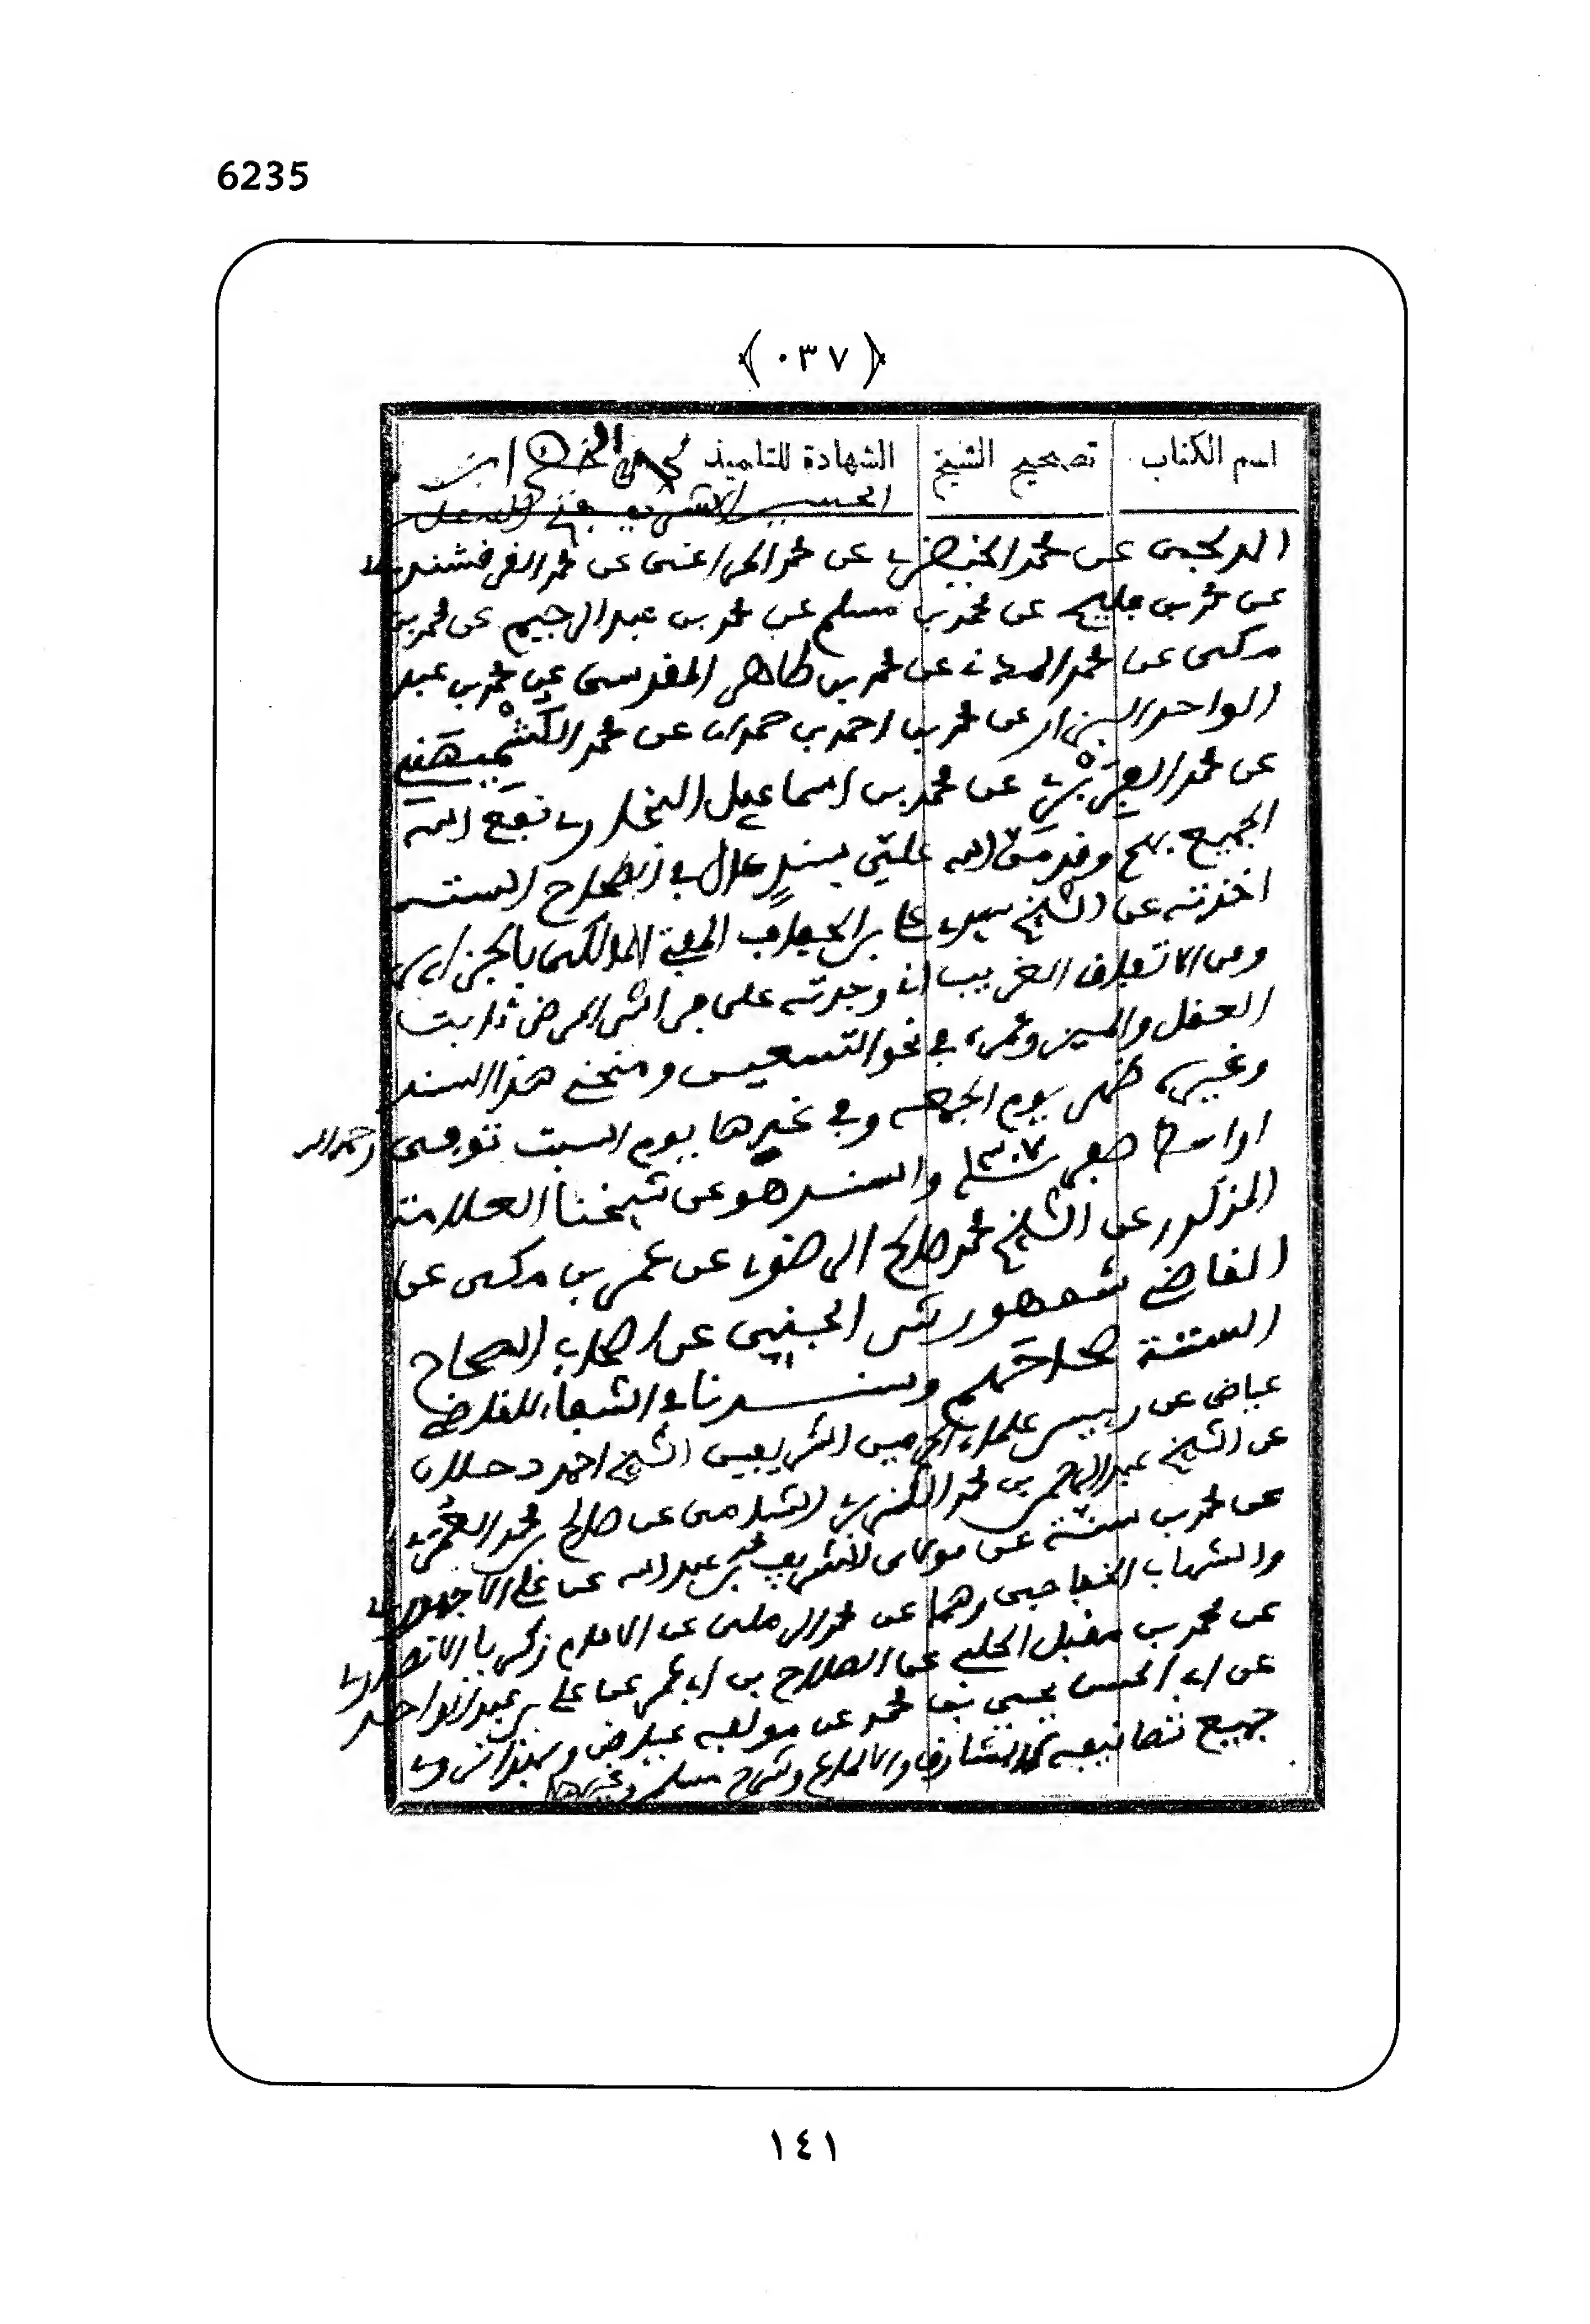 6235
﴿ ٠٣٧ ﴾
اسم الكتاب تصحيح الشيخ الشهادة للتلميذ محمد الخضر ابن
الحسين الشريف
الدلجي عن محمد الخيضري عن محمد المراغي عن محمد القرقشندي
عن محمد بن عن محمد بن مسلم عن محمد بن عبد الرحيم عن محمد بن
مكي عن محمد عن محمد بن طاهر المقدسي عن محمد بن عبد
الواحد البزار عن محمد بن احمد بن حمدان عن محمد الكشميهني
عن محمد الفربري عن محمد بن اسماعيل البخاري نفع الله
الجميع بهم وقد من الله علي بسند عال في الصحاح الستة
اخذته عن الشيخ سيدي علي بن الحفاف المفتي المالكي بالجزاير
ومن الاتفاق الغريب اني وجدته على فراش المرض ثابت
العقل والميز وعمره في نحو التسعين ومنحني هذا السند
وغيره ظهر يوم الجمعة وفي غيرها يوم السبت توفي رحمه الله
اواسط صفر سنة ١٣٠٧ والسند هو عن شيخنا العلامة
المذكور عن الشيخ محمد صالح الرضوي عن عمر بن مكي عن
القاضي شمهورش الجني عن اصحاب الصحاح
الستة وسندنا في الشفاء للقاضي
عياض عن رييس علماء الحرمين الشريفين الشيخ احمد دحلان
عن الشيخ عبد الرحمن بن محمد الكزبري الشامي عن صالح بن محمد العمري
عن محمد بن سنة عن مولاي الشريف محمد بن عبد الله عن علي الاجهوري
والشهاب الخفاجي وهما عن محمد الرملي عن الامام زكريا الانصاري
عن محمد بن مقبل الحلبي عن الصلاح بن ابي عمر عن علي بن عبد الواحد
عن ابي الحسن يحيى بن محمد عن مولفه عياض وبهذا نروي
جميع تصانيفه كالمشارق والالماع وشرح مسلم وغيرها
١٤١